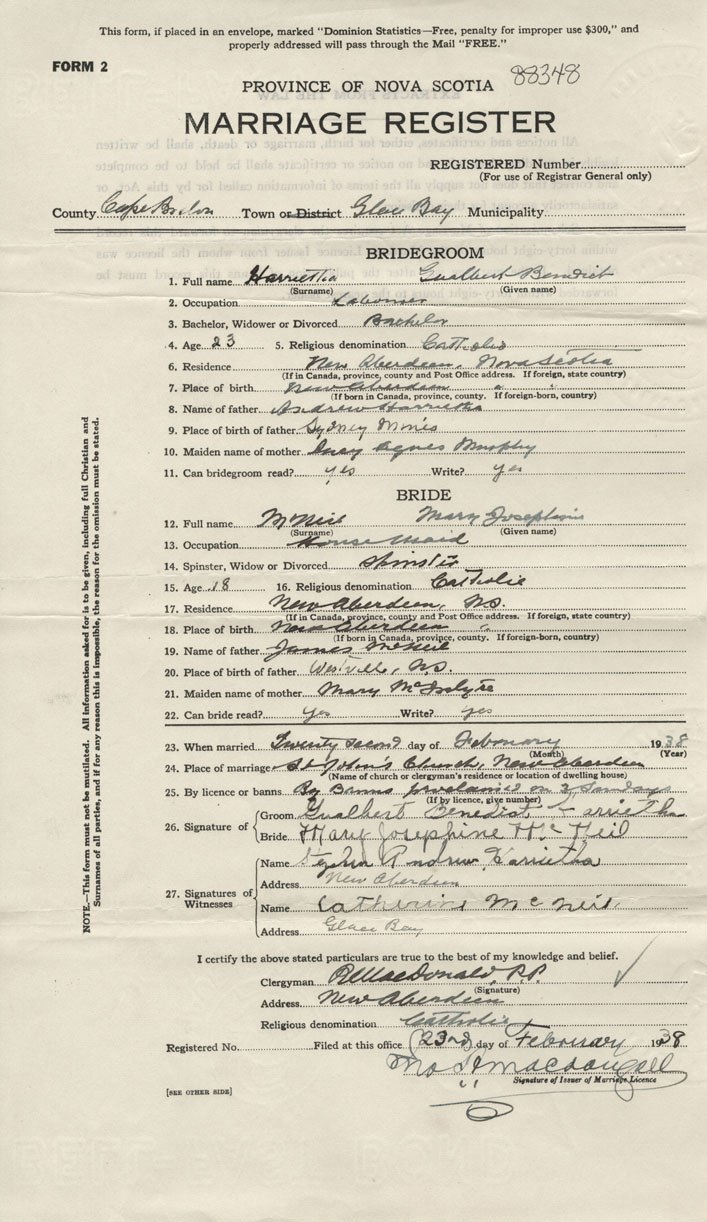 This form, if placed in an envelope, marked "Dominion Statistics—Free, penalty for improper use $300," and
properly addressed will pass through the Mail "FREE."
FORM 2
88348
PROVINCE OF NOVA SCOTIA
MARRIAGE REGISTER
REGISTERED Number
(For use of Registrar General only)
County Cape Breton Town or District Glace Bay Municipality
BRIDEGROOM
1. Full name Harrietha Gualbert Benedict
(Surname) (Given name)
2. Occupation Labourer
3. Bachelor, Widower or Divorced Bachelor
4. Age 23 5. Religious denomination Catholic
6. Residence New Aberdeen, Nova Scotia
(If in Canada, province, county and Post Office address. If foreign, state country)
7. Place of birth New Aberdeen
(If born in Canada, province, county. If foreign-born, country)
8. Name of father Andrew Harrietha
9. Place of birth of father Sydney Mines
10. Maiden name of mother Agnes Murphy
11. Can bridegroom read? yes Write? yes
BRIDE
12. Full name McNeil Mary Josephine
(Surname) (Given name)
13. Occupation House Maid
14. Spinster, Widow or Divorced Spinster
15. Age 18 16. Religious denomination Catholic
17. Residence New Aberdeen, N.S.
(If in Canada, province, county and Post Office address. If foreign, state country)
18. Place of birth New Aberdeen
(If born in Canada, province, county. If foreign-born, country)
19. Name of father James McNeil
20. Place of birth of father Westville, N.S.
21. Maiden name of mother Mary McIntyre
22. Can bride read? yes Write? yes
23. When married Twenty second day of February 1938
(Month) (Year)
24. Place of marriage St John's Church, New Aberdeen
(Name of church or clergyman's residence or location of dwelling house)
25. By licence or banns By Banns proclaimed on 3 Sundays
(If by licence, give number)
26. Signature of
Groom Gualbert Benedict Harrietha
Bride Mary Josephine McNeil
27. Signatures of Witnesses
Name Stephen Andrew Harrietha
Address New Aberdeen
Name Catherine McNeil
Address Glace Bay
I certify the above stated particulars are true to the best of my knowledge and belief.
Clergyman MacDonald, P.P.
(Signature)
Address New Aberdeen
Religious denomination Catholic
Registered No. Filed at this office 23rd day of February 1938
MacDougall
Signature of Issuer of Marriage Licence
[SEE OTHER SIDE]
NOTE.—This form must not be mutilated. All information asked for is to be given, including full Christian and
Surnames of all parties, and if for any reason this is impossible, the reason for the omission must be stated.